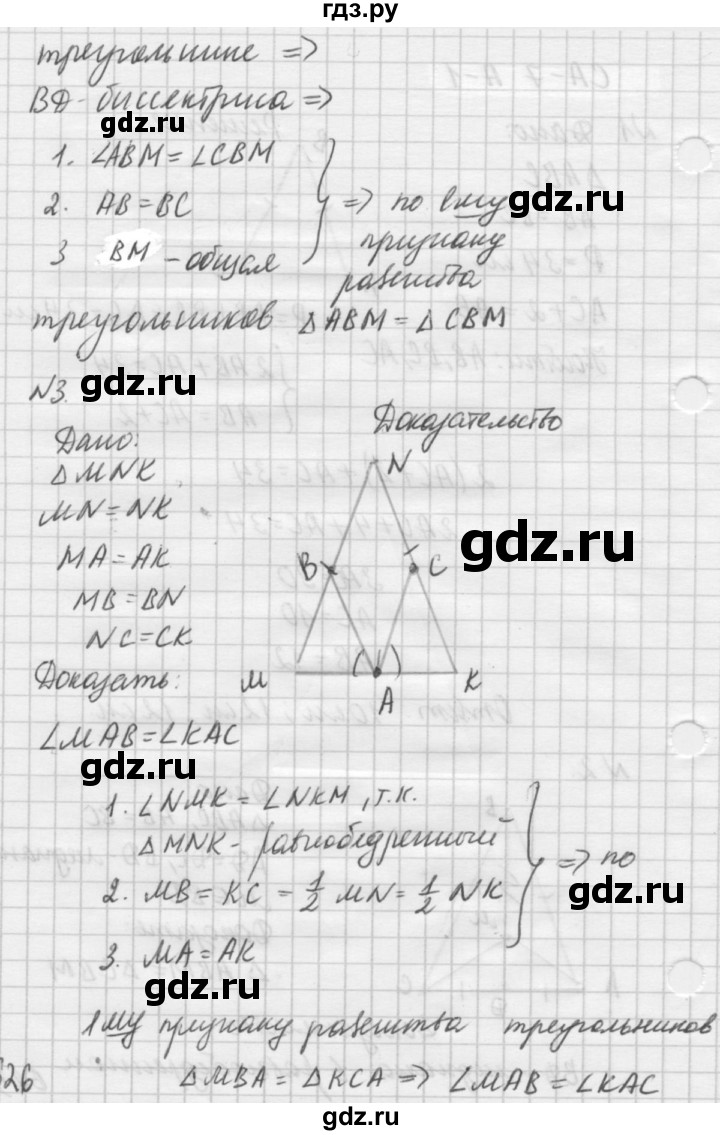 гдз.ру
треугольнике =>
ВД - биссектриса =>
gdz.ru
1. ∠ABM = ∠CBM
2. AB = BC
3 BM - общая
=> по 1му
gdz.ru
признаку
равенства
треугольников △ABM = △CBM
gdz.ru
N3.
Доказательство
Дано:
△MNK,
MN = NK
MA = AK
MB = BN
NC = CK
N
B
C
gdz.ru
M
A
K
Доказать:
∠MAB = ∠KAC
gdz.ru
1. ∠NMK = ∠NKM, т.к.
△MNK - равнобедренный
2. MB = KC = 1/2 MN = 1/2 NK
3. MA = AK
=> по
gdz.ru
gdz.ru
1му признаку равенства треугольников
△MBA = △KCA => ∠MAB = ∠KAC
26
gdz.ru